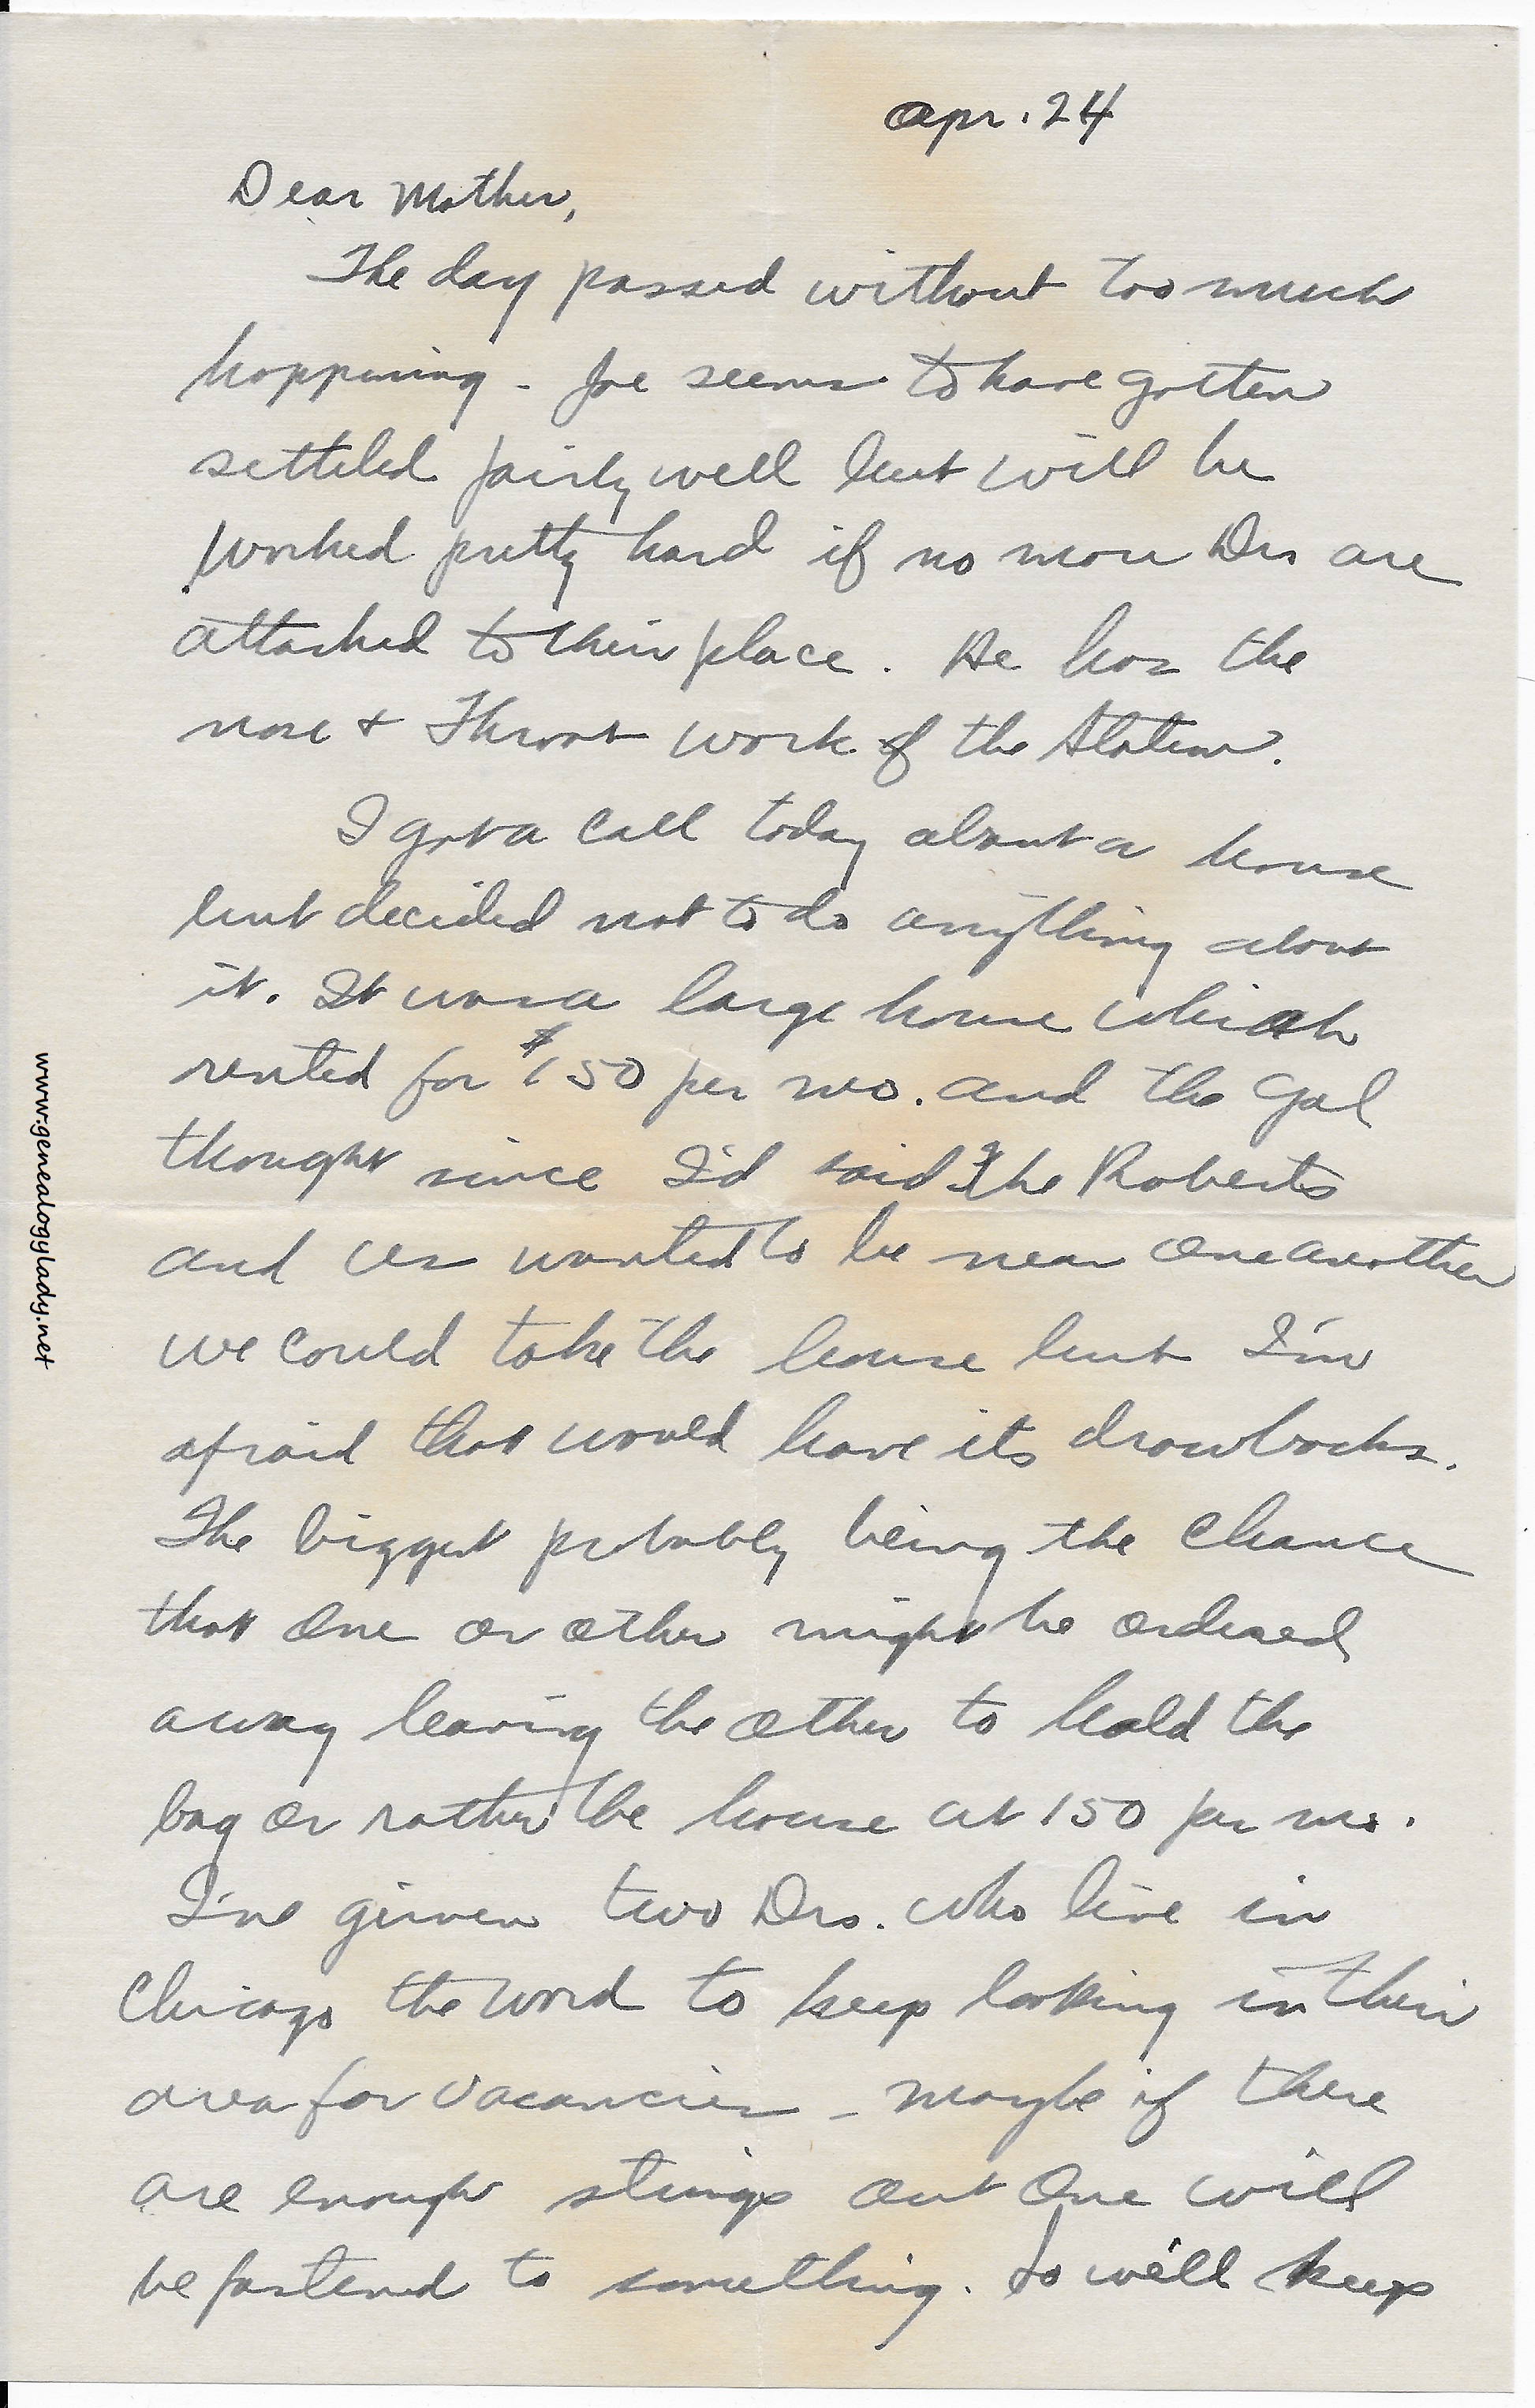 Apr. 24
Dear Mother,
The day passed without too much
happening - Joe seems to have gotten
settled fairly well but will be
worked pretty hard if no more Drs are
attached to their place. He has the
nose & Throat work of the Station.
I got a call today about a house
but decided not to do anything about
it. It was a large house which
rented for $150 per mo. and the gal
thought since I'd said the Roberts
and us wanted to be near one another
we could take the house but I'm
afraid that would have its drawbacks.
The biggest probably being the chance
that one or other might be ordered
away leaving the other to hold the
bag or rather the house at 150 per mo.
I've given two Drs. who live in
Chicago the word to keep looking in their
area for vacancies - maybe if there
are enough strings out one will
be fastened to something. So we'll keep
www.genealogylady.net